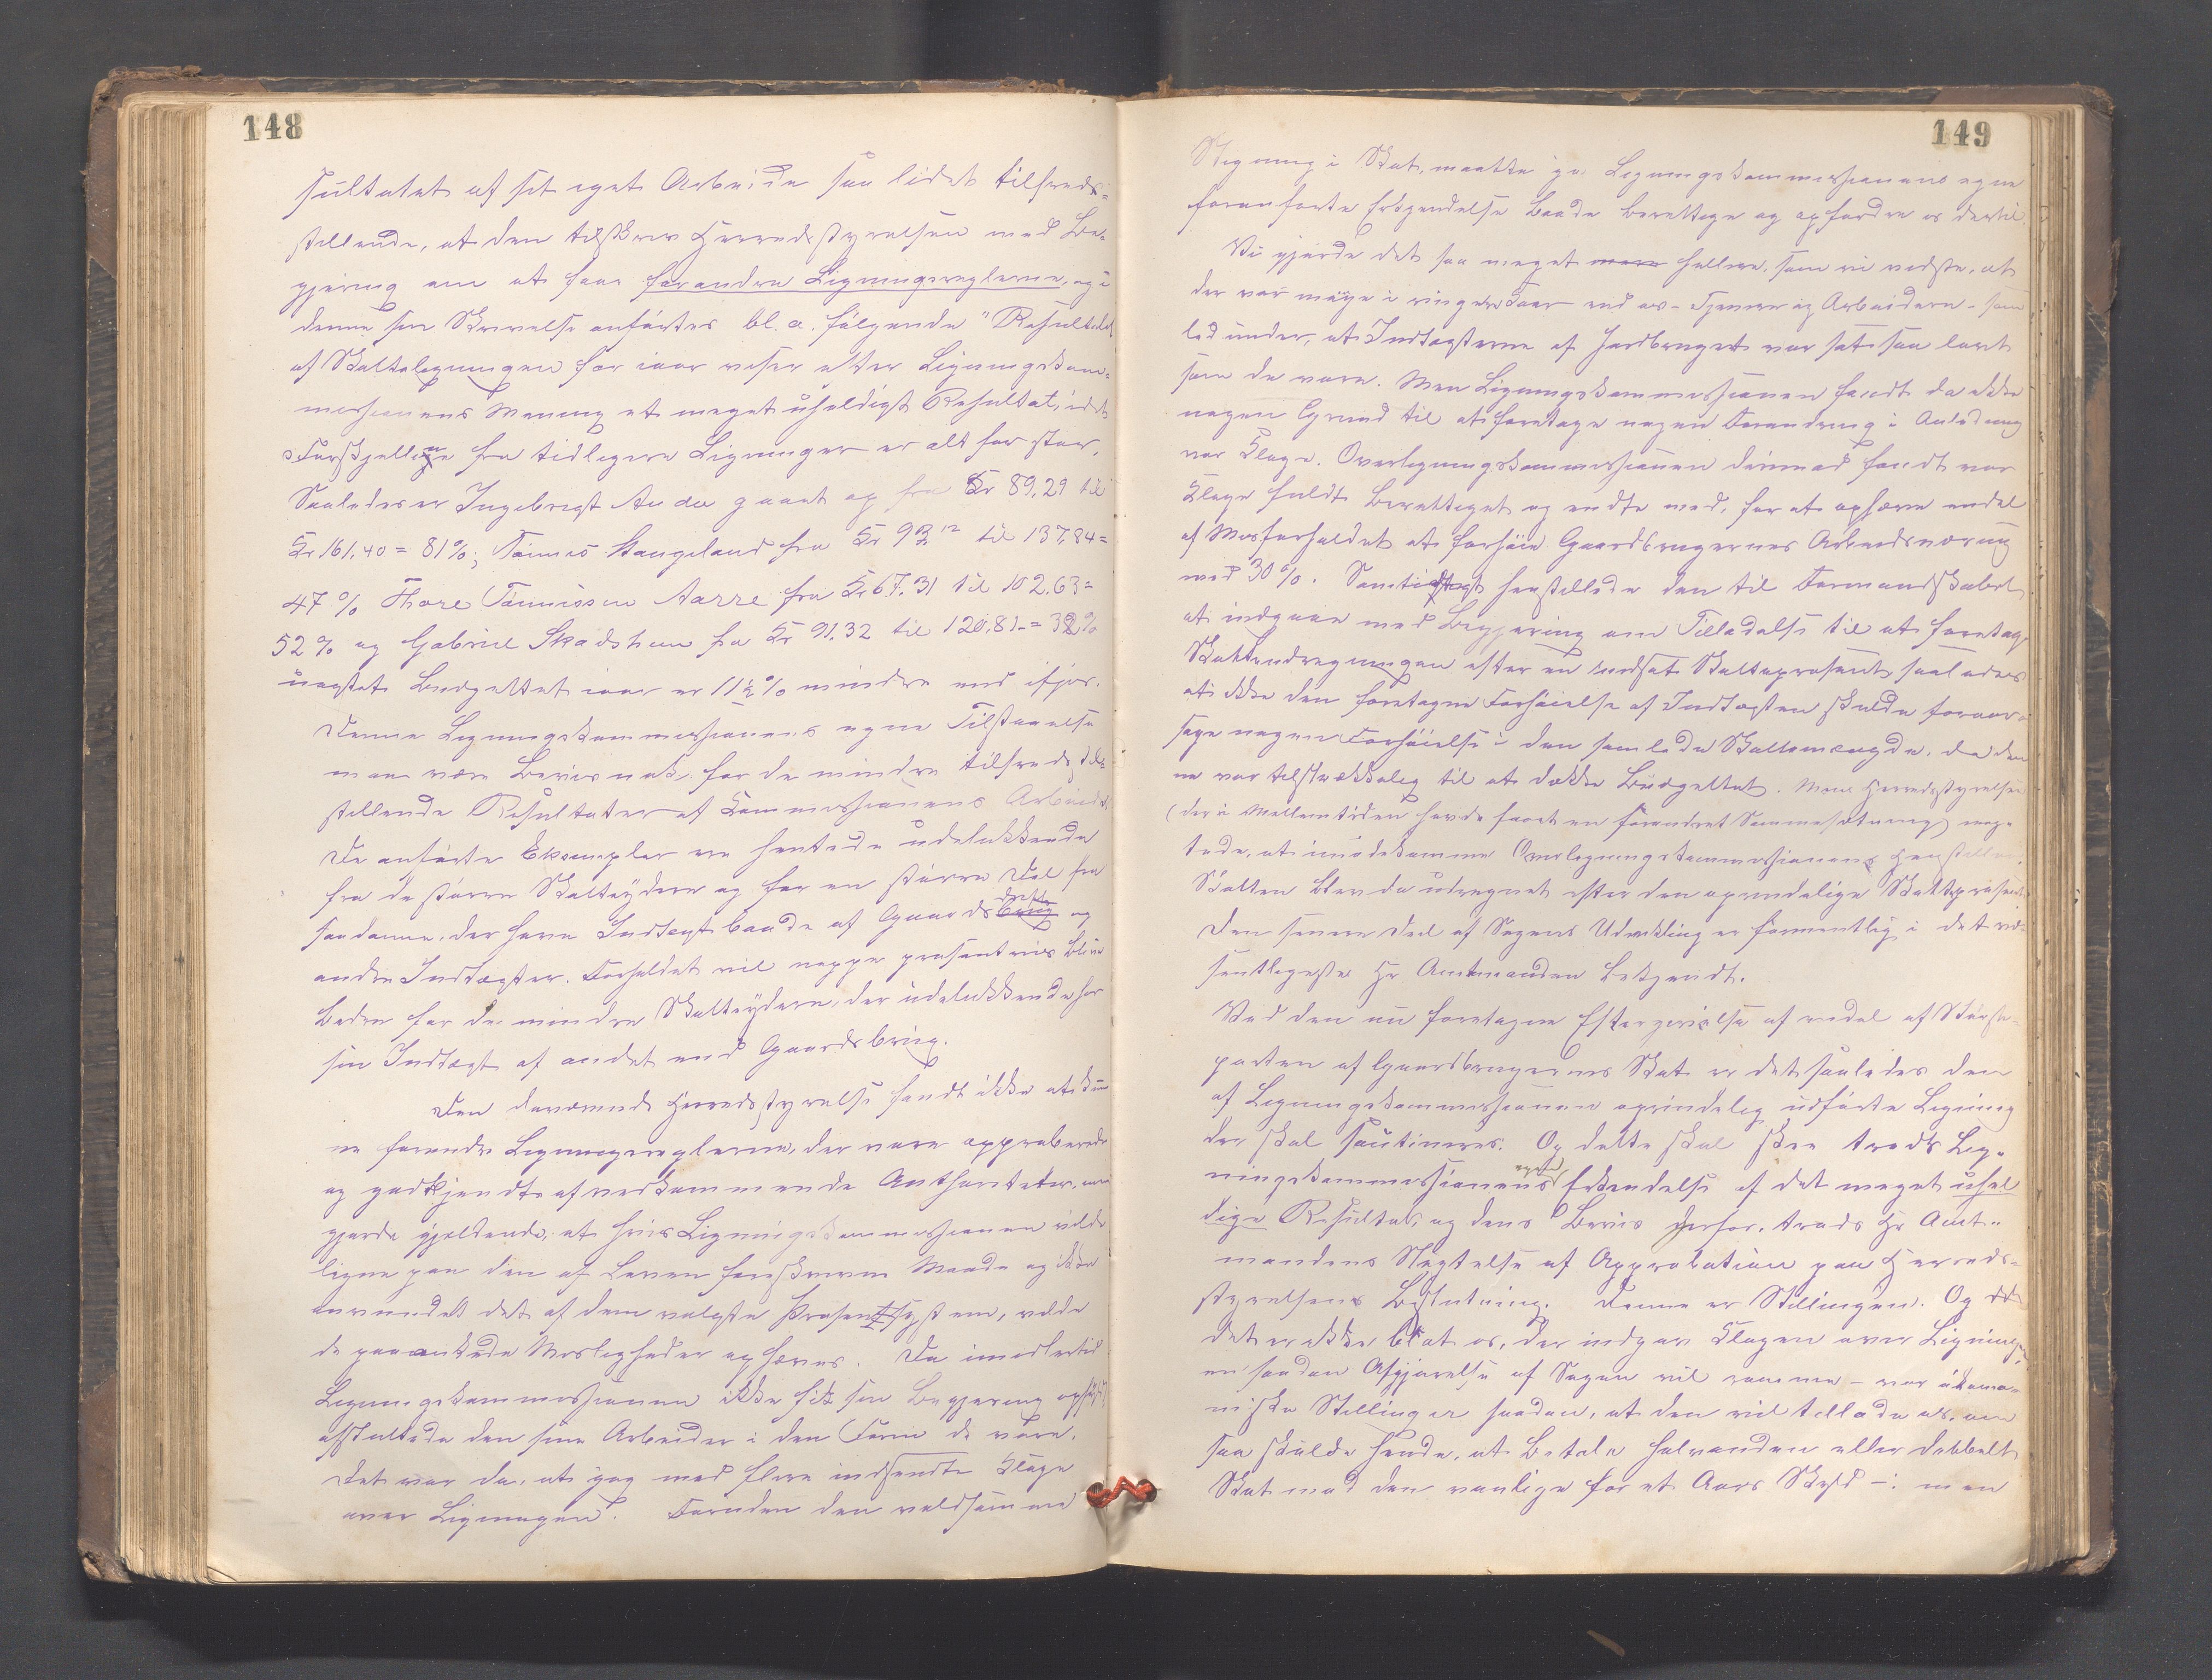 148
sultatet af sit eget Arbeide saa lidet tilfreds-
stillende, at den tilskrev Herredsstyrelsen med Be-
gjæring om at faa forandre Ligningsreglerne, og i
denne sin Skrivelse anførtes bl. a. følgende "Resultatet
af Skatteligningen for iaar viser efter Ligningskom-
missionens Mening et meget uheldigt Resultat, idet
Forskjellen fra tidligere Ligninger er alt for stor.
Saaledes er Ingebrigt Auda gaaet op fra Kr 89,29 til
Kr 161,40 = 81%; Tønnes Stangeland fra Kr 93,12 til 137,84 =
47 % Thore Tønnessen Aarre fra Kr 67.31 til 102.63 =
52 % og Gabriel Skadsheim fra Kr 91.32 til 120.81 = 32%
uagtet Budgettet iaar er 11½% mindre end ifjor.
Denne Ligningskommissionens egne Tilstaaelse
maa være Bevis nok for de mindre tilfreds-
stillende Resultater af Kommissionens Arbeide.
De anførte Eksempler ere hentede udelukkende
fra de større Skatteydere og for en større Del fra
saadanne, der have Indtægt baade af Gaardsbrug og
andre Indtægter. Forholdet vil neppe prosentvis blive
bedre for de mindre Skatteydere, der udelukkende har
sin Indtægt af andet end Gaardsbrug.
Den daværende Herredsstyrelse fandt ikke at kun-
ne forandre Ligningsreglerne, der vare approberede
og godkjendte af vedkommende Authoriteter, men
gjorde gjældende, at hvis Ligningskommissionen vilde
ligne paa den af Loven foreskrevne Maade og ikke
anvendte det af dem valgte Prosentsystem, vilde
de paaankede Misligheder ophæves. Da imidlertid
Ligningskommissionen ikke fik sin Begjæring opfyldt
afsluttede den sine Arbeider i den Form de vare.
Det var da, at jeg med flere indsendte Klage
over Ligningen. Foruden den voldsomme
149
Stigning i Skat, maatte jo Ligningskommissionens egne
foranførte Erkjendelse baade berettige og opfordre os dertil.
Vi gjorde det saa meget hellere, som vi vidste, at
der var mange i ringere Kaar end os - Tjenere og Arbeidere - som
led under, at Indtægterne af Jordbruget var sat saa lavt
som de vare. Men Ligningskommissionen fandt da ikke
nogen Grund til at foretage nogen Forandring i Anledning
vor Klage. Overligningskommissionen derimod fandt vor
Klage fuldt berettiget og endte med, for at ophæve endel
af Misforholdet at forhøie Gaardbrugernes Arbeidsnæring
med 30%. Samtidigt henstillede den til Formandskabet
at indgaae med Begjæring om Tilladelse til at foretage
Skatteudregningen efter en nedsat Skatteprosent saaledes
at ikke den foretagne Forhøielse af Indtægten skulde foraar-
sage nogen Forhøielse i den samlede Skattemængde, da den-
ne var tilstrækkelig til at dække Budgettet. Men Herredsstyrelsen
(der i Mellemtiden havde faaet en forandret Sammensætning) næg-
tede, at imødekomme Overligningskommissionens Henstilling.
Skatten blev da udregnet efter den oprindelige Skatteprosent.
Den senere Del af Sagens Udvikling er formentlig i det væ-
sentligste Hr Amtmanden bekjendt.
Ved den nu foretagne Eftergivelse af endel af Største-
parten af Gaardbrugernes Skat er det saaledes den
af Ligningskommissionen oprindelig udførte Ligning
der skal Og dette skal ske trods Lig-
ningskommissionens egen Erkendelse af det meget uhel
dige Resultat, og dens Bevis derfor, trods Hr Amt-
mandens Nægtelse af Approbation paa Herreds-
styrelsens Beslutning. Denne er Stillingen. Og
det er ikke blot os, der indgav Klagen over Ligningen,
en saadan Afgjørelse af Sagen vil ramme - vor økono-
miske Stilling er saadan, at den vil tillade os, om
saa skulde hende, at betale halvanden eller dobbelt
Skat mod den vanlige for et Aars Skyld -: men